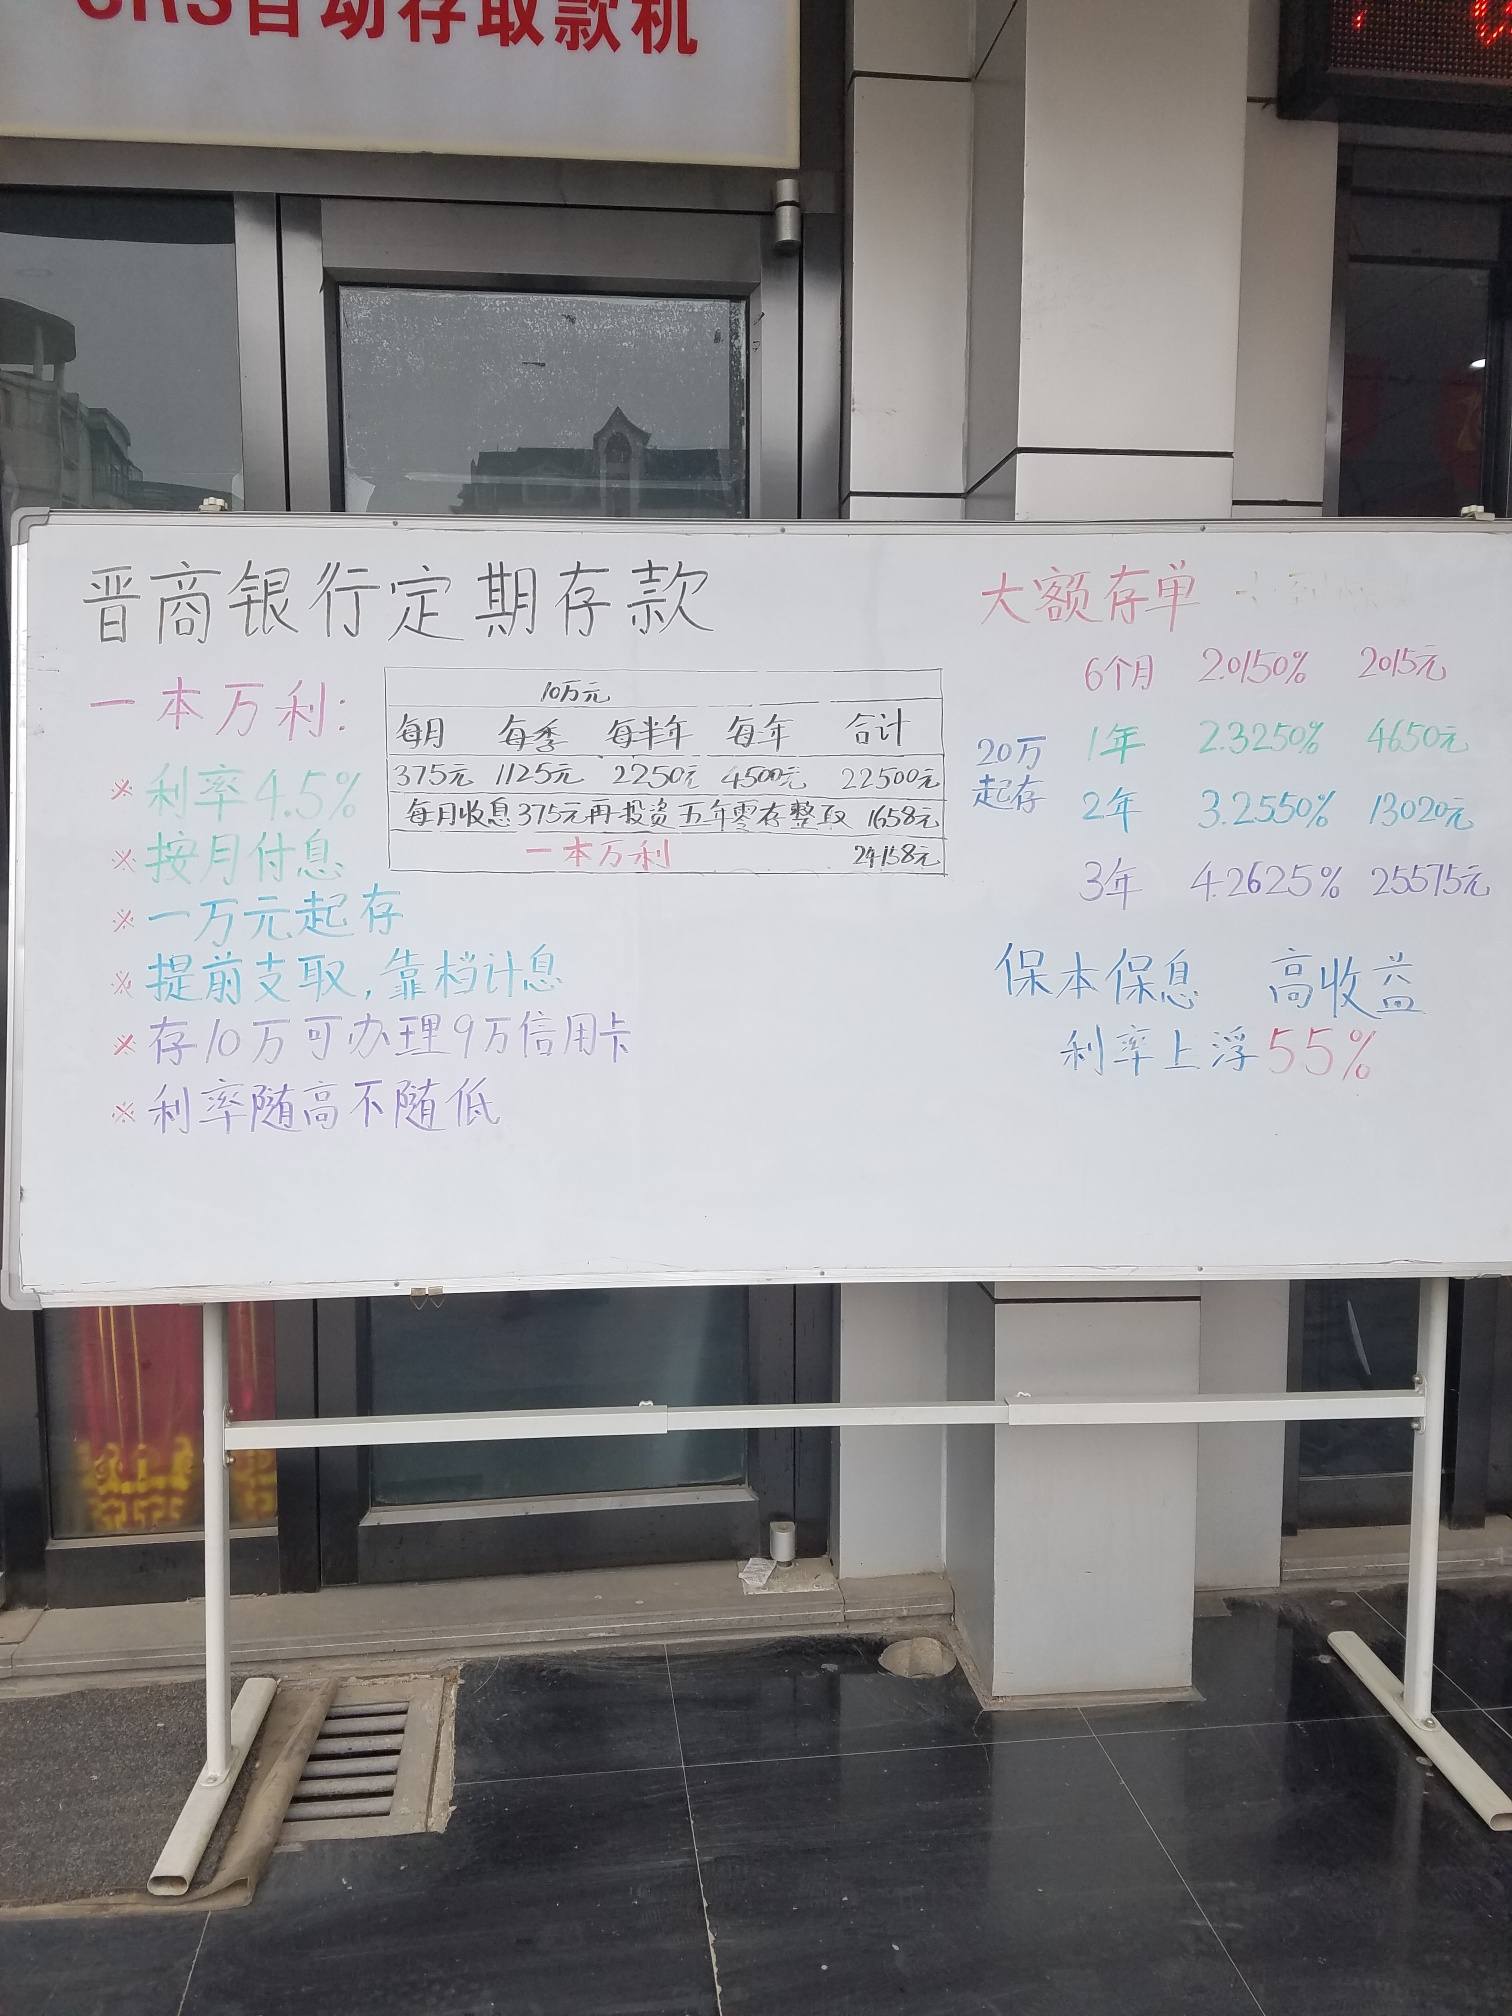 CRS自动存取款机
晋商银行定期存款
一本万利:
※利率4.5%
※按月付息
※一万元起存
※提前支取,靠档计息
※存10万可办理9万信用卡
※利率随高不随低
10万元
每月 每季 每半年 每年 合计
375元 1125元 2250元 4500元 22500元
每月收息375元再投资五年零存整取 1658元
一本万利 24158元
大额存单
20万
起存
6个月 2.0150% 2015元
1年 2.3250% 4650元
2年 3.2550% 13020元
3年 4.2625% 25575元
保本保息 高收益
利率上浮55%